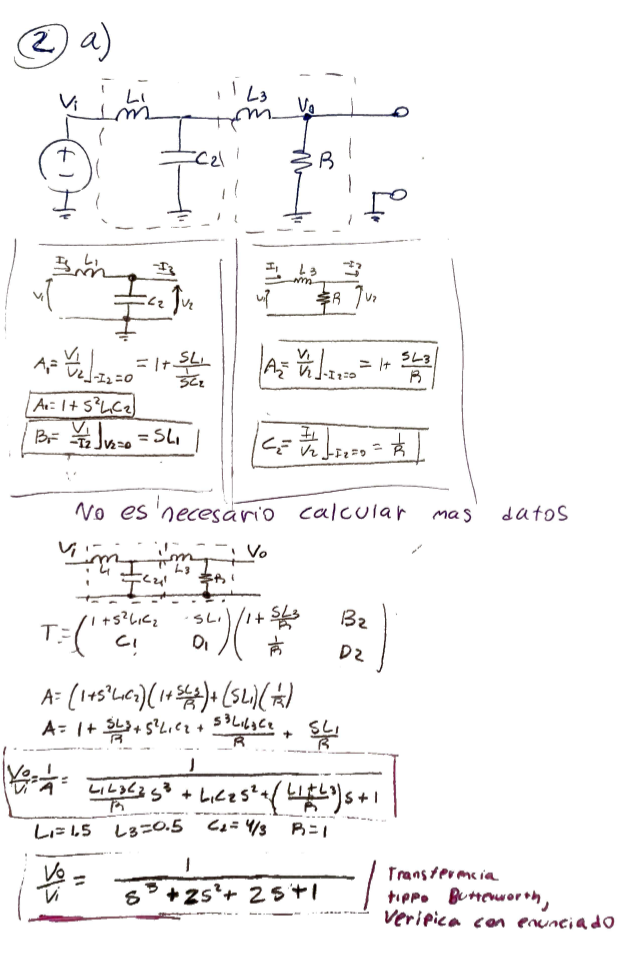 2) a)
Vi L1 L3 Vo
+ - C2 R
I1 L1 -I2
V1 C2 V2
A1 = V1/V2 ]-I2=0 = 1 + SL1/(1/SC2)
A1 = 1 + S²L1C2
B1 = V1/-I2 ]V2=0 = SL1
I1 L3 -I2
V1 R V2
A2 = V1/V2 ]-I2=0 = 1 + SL3/R
C2 = I1/V2 ]-I2=0 = 1/R
No es necesario calcular mas datos
Vi L1 C2 L3 R Vo
T = (1+S²L1C2 SL1 / C1 D1) (1 + SL3/R B2 / 1/R D2)
A = (1+S²L1C2)(1+SL3/R) + (SL1)(1/R)
A = 1 + SL3/R + S²L1C2 + S³L1L3C2/R + SL1/R
Vo/Vi = 1/A = 1 / (L1L3C2/R S³ + L1C2S² + (L1+L3/R)S + 1)
L1=1.5 L3=0.5 C2=4/3 R=1
Vo/Vi = 1 / (S³ + 2S² + 2S + 1)
Transferencia
tippo Butterworth,
Verifica con enunciado